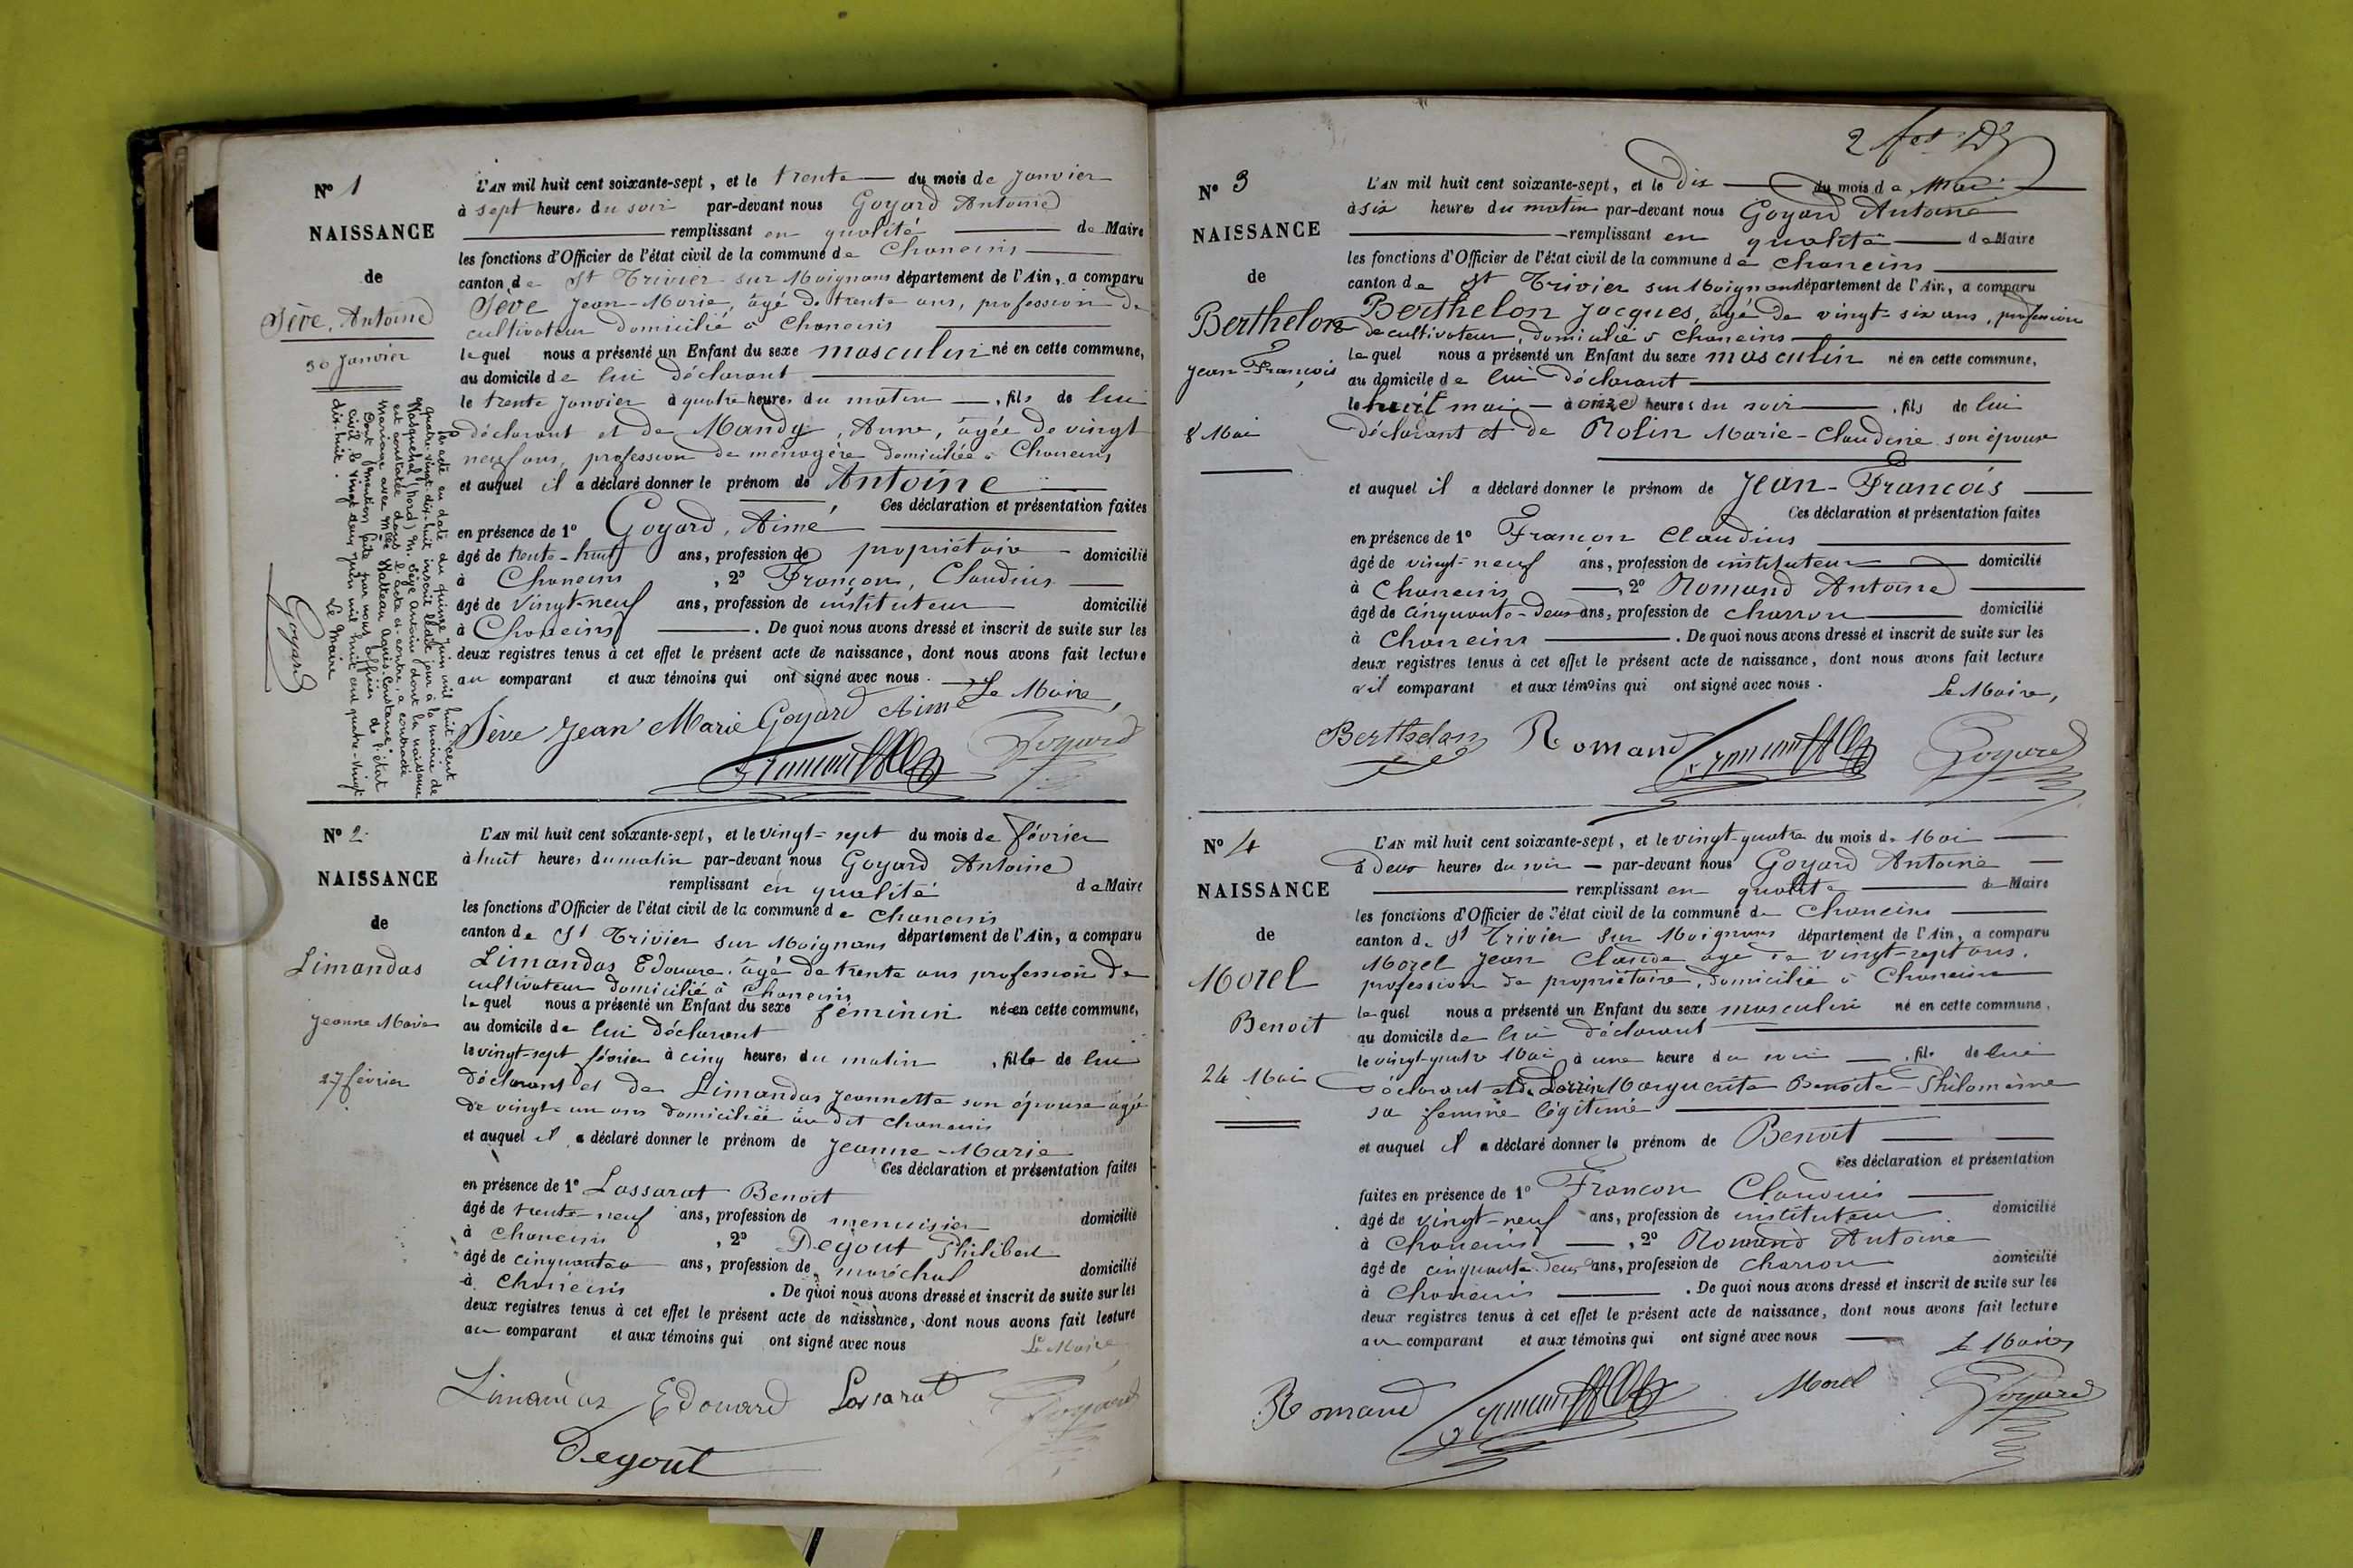 N° 1
NAISSANCE
de
Sève, Antoine
30 Janvier
L'AN mil huit cent soixante-sept, et le trente du mois de Janvier
à sept heures du soir par-devant nous Goyard Antoine
remplissant en qualité de Maire
les fonctions d'Officier de l'état civil de la commune de Chaneins
canton de St Trivier sur Moignans département de l'Ain, a comparu
Sève Jean-Marie, âgé de trente ans, profession de
cultivateur domicilié à Chaneins
lequel nous a présenté un Enfant du sexe masculin né en cette commune,
au domicile de lui déclarant
le trente Janvier à quatre heures du matin, fils de lui
déclarant et de Mandy, Anne, âgée de vingt
neuf ans, profession de ménagère domiciliée à Chaneins
et auquel il a déclaré donner le prénom de Antoine
Ces déclaration et présentation faites
en présence de 1° Goyard, Aimé
âgé de trente-huit ans, profession de propriétaire domicilié
à Chaneins, 2° Françon, Claudius
âgé de vingt-neuf ans, profession de instituteur domicilié
à Chaneins. De quoi nous avons dressé et inscrit de suite sur les
deux registres tenus à cet effet le présent acte de naissance, dont nous avons fait lecture
au comparant et aux témoins qui ont signé avec nous.
Le Maire,
Sève Jean Marie Goyard Aimé
Goyard
acte en date du quinze juin mil huit cent
quatre-vingt-dix-huit inscrit ledit jour à la mairie de
Wasquehal (Nord) M. Sève Antoine dont la naissance
est constatée dans l'acte ci-contre, a contracté
mariage avec Melle Wateau Agnès Constance.
Dont mention faite par nous officier de l'état
civil le vingt deux juin mil huit cent quatre-vingt
dix-huit.
Le Maire
Goyard
N° 2
NAISSANCE
de
Limandas
Jeanne Marie
27 février
L'AN mil huit cent soixante-sept, et le vingt-sept du mois de février
à huit heures du matin par-devant nous Goyard Antoine
remplissant en qualité de Maire
les fonctions d'Officier de l'état civil de la commune de Chaneins
canton de St Trivier sur Moignans département de l'Ain, a comparu
Limandas Edouard, âgé de trente ans profession de
cultivateur domicilié à Chaneins
lequel nous a présenté un Enfant du sexe féminin né en cette commune,
au domicile de lui déclarant
le vingt-sept février à cinq heures du matin, fille de lui
déclarant et de Limandas Jeannette son épouse âgé
de vingt-un ans domiciliée au dit Chaneins
et auquel il a déclaré donner le prénom de Jeanne-Marie
Ces déclaration et présentation faites
en présence de 1° Lassarat Benoit
âgé de trente-neuf ans, profession de menuisier domicilié
à Chaneins, 2° Degout Philibert
âgé de cinquante ans, profession de maréchal domicilié
à Chaneins. De quoi nous avons dressé et inscrit de suite sur les
deux registres tenus à cet effet le présent acte de naissance, dont nous avons fait lecture
au comparant et aux témoins qui ont signé avec nous
Le Maire
Limandas Edouard Lassarat Goyard
Degout
N° 3
NAISSANCE
de
Berthelon
Jean-François
8 Mai
L'AN mil huit cent soixante-sept, et le dix du mois de Mai
à six heures du matin par-devant nous Goyard Antoine
remplissant en qualité de Maire
les fonctions d'Officier de l'état civil de la commune de Chaneins
canton de St Trivier sur Moignans département de l'Ain, a comparu
Berthelon Jacques, âgé de vingt-six ans, profession
de cultivateur, domicilié à Chaneins
lequel nous a présenté un Enfant du sexe masculin né en cette commune,
au domicile de lui déclarant
le huit mai à onze heures du soir, fils de lui
déclarant et de Rolin Marie-Claudine son épouse
et auquel il a déclaré donner le prénom de Jean-François
Ces déclaration et présentation faites
en présence de 1° Françon Claudius
âgé de vingt-neuf ans, profession de instituteur domicilié
à Chaneins, 2° Romand Antoine
âgé de cinquante-deux ans, profession de charron domicilié
à Chaneins. De quoi nous avons dressé et inscrit de suite sur les
deux registres tenus à cet effet le présent acte de naissance, dont nous avons fait lecture
comparant et aux témoins qui ont signé avec nous.
Le Maire,
Berthelon Romand Goyard
N° 4
NAISSANCE
de
Morel
Benoit
24 Mai
L'AN mil huit cent soixante-sept, et le vingt-quatre du mois de Mai
à deux heures du soir par-devant nous Goyard Antoine
remplissant en qualité de Maire
les fonctions d'Officier de l'état civil de la commune de Chaneins
canton de St Trivier sur Moignans département de l'Ain, a comparu
Morel Jean Claude âgé de vingt-sept ans,
profession de propriétaire, domicilié à Chaneins
lequel nous a présenté un Enfant du sexe masculin né en cette commune,
au domicile de lui déclarant
le vingt-quatre Mai à une heure du soir, fils de lui
déclarant et de Marguerite Benoite Philomène
sa femme légitime
et auquel il a déclaré donner le prénom de Benoit
Ces déclaration et présentation
faites en présence de 1° Françon Claudius
âgé de vingt-neuf ans, profession de instituteur domicilié
à Chaneins, 2° Romand Antoine
âgé de cinquante-deux ans, profession de charron domicilié
à Chaneins. De quoi nous avons dressé et inscrit de suite sur les
deux registres tenus à cet effet le présent acte de naissance, dont nous avons fait lecture
au comparant et aux témoins qui ont signé avec nous
Le Maire
Romand Morel Goyard